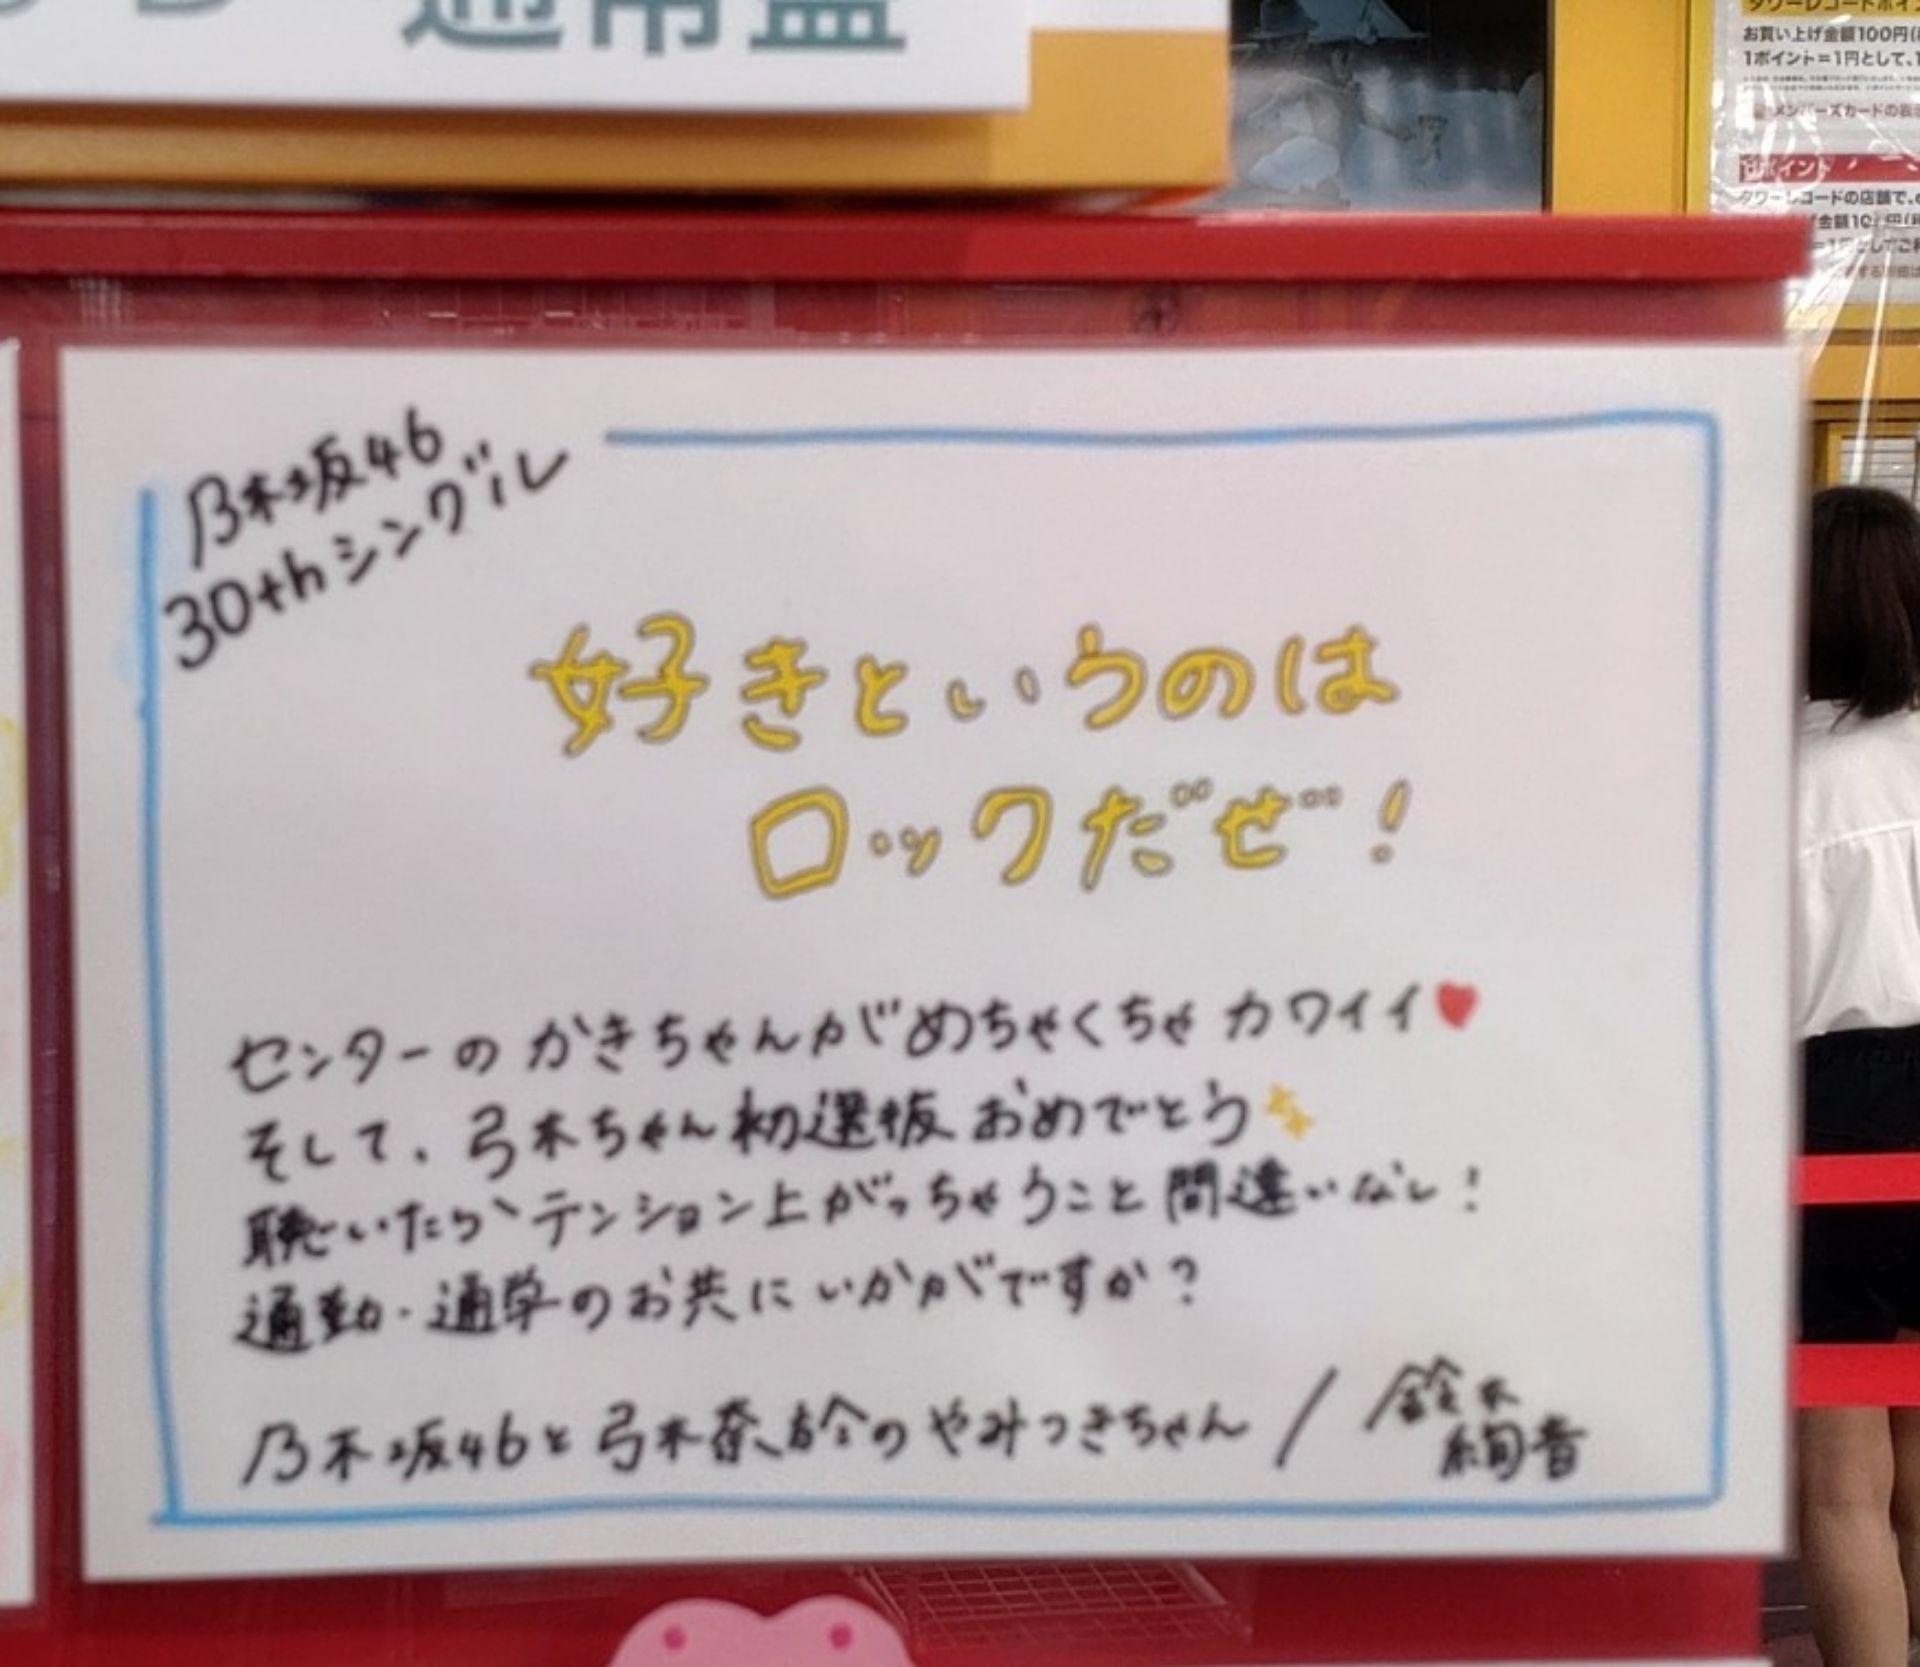 通常盤
タワーレコードポイ
お買い上げ金額100円(
1ポイント=1円として、1
メンバーズカードの表
ポイント
タワーレコードの店舗で、
金額10 円(
=1円としてご利
乃木坂46
30thシングル
好きというのは
ロックだぜ!
センターのかきちゃんがめちゃくちゃカワイイ♥
そして、弓木ちゃん初選抜おめでとう✨
聴いたらテンション上がっちゃうこと間違いなし!
通勤・通学のお共にいかがですか?
乃木坂46と弓木奈於のやみつきちゃん/鈴木
絢音